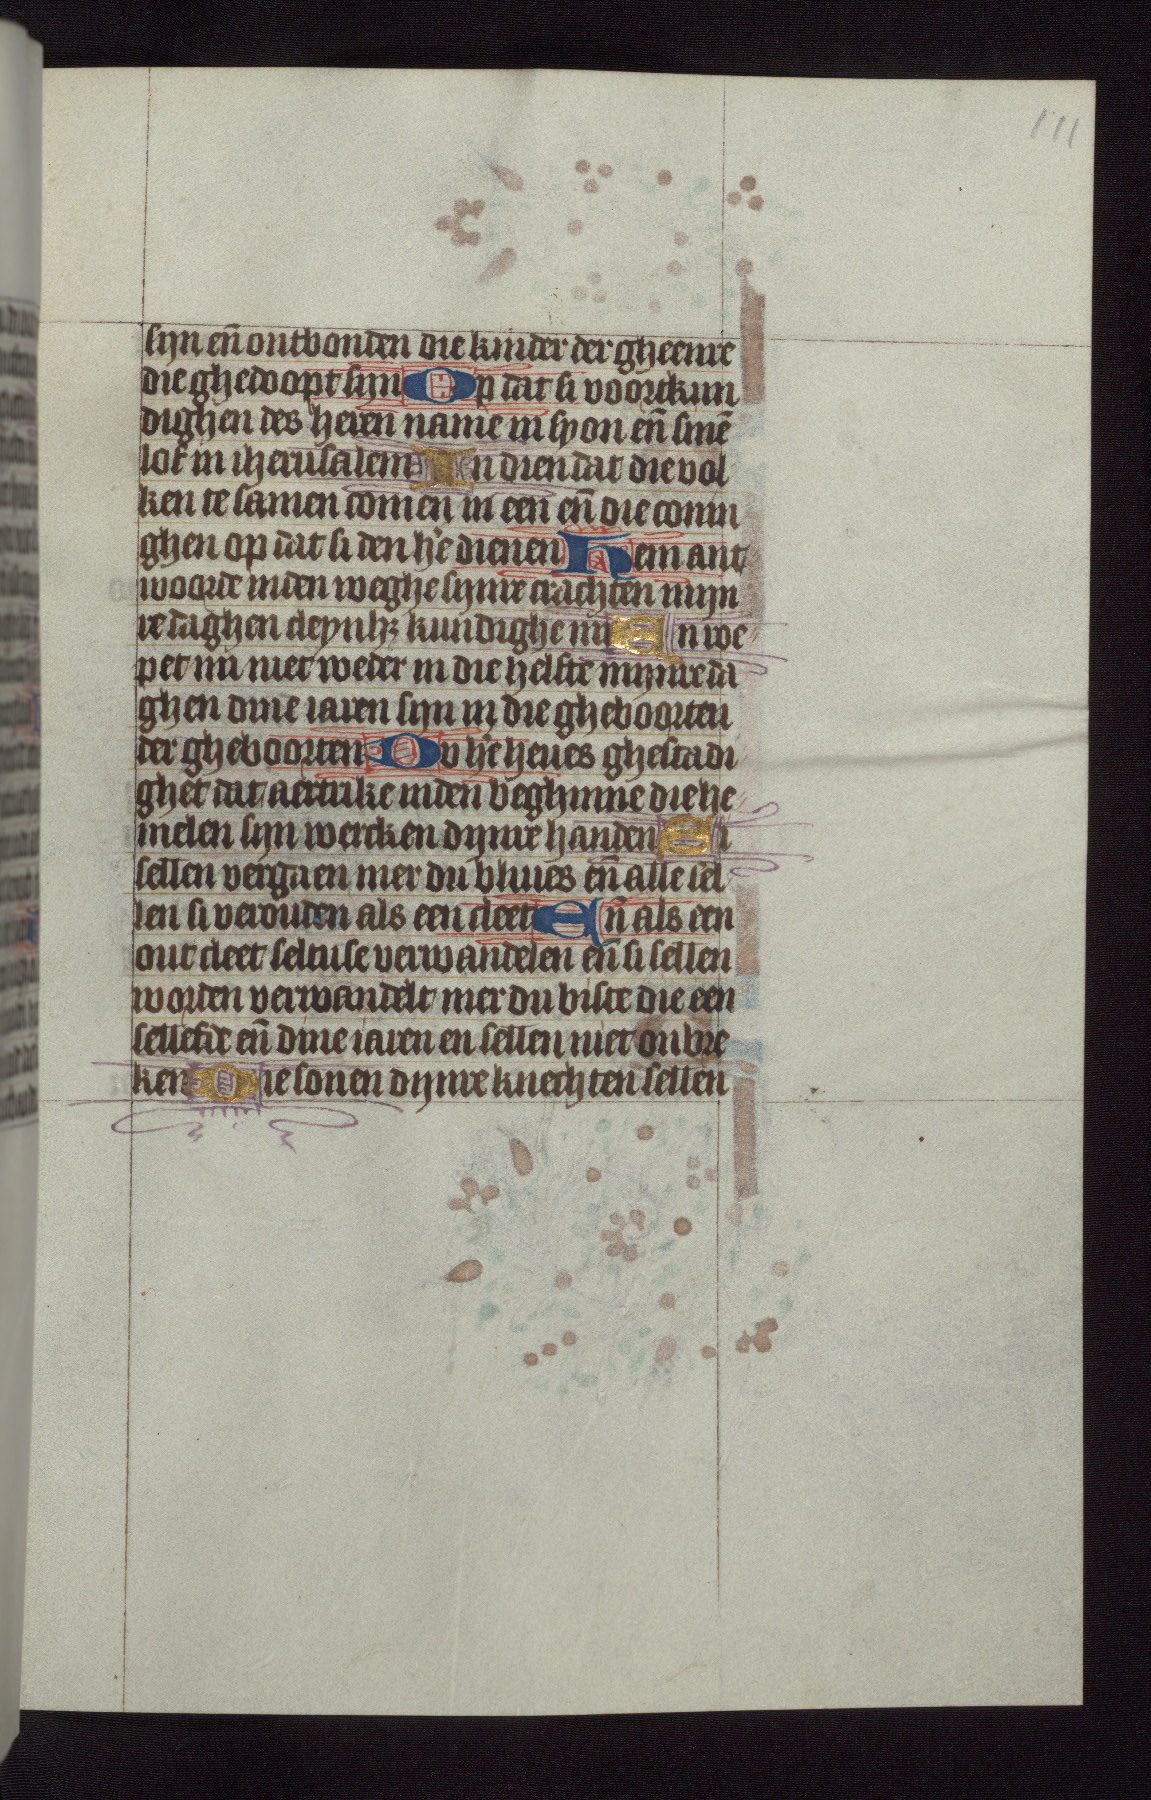 111
sijn en̄ ontbonden die kinder der gheenre
die ghedoopt sijn Op dat si voorckun
dighen des heren name in syon en̄ sinē
lof in iherusalem In dien dat die vol
ken te samen comen in een en̄ die conin
ghen op dat si den he dienen Hem ant
woorde inden weghe sijnre crachten mijn
re daghen cleynhꝫ kundighe mi En we
pet mi niet weder in die helfte mijnre da
ghen dine iaren sijn in die gheboorten
der gheboorten Du he heues ghestadi
ghet dat aertrike inden beghinne die he
melen sijn wercken dijnre handen Si
sellen vergaen mer du bliues en̄ alle sel
len si verouden als een cleet En̄ als een
out cleet seltuse verwandelen en̄ si sellen
worden verwandelt mer du biste die een
selfde en̄ dine iaren en sellen niet onbre
ken Die sonen dijnre knechten sellen